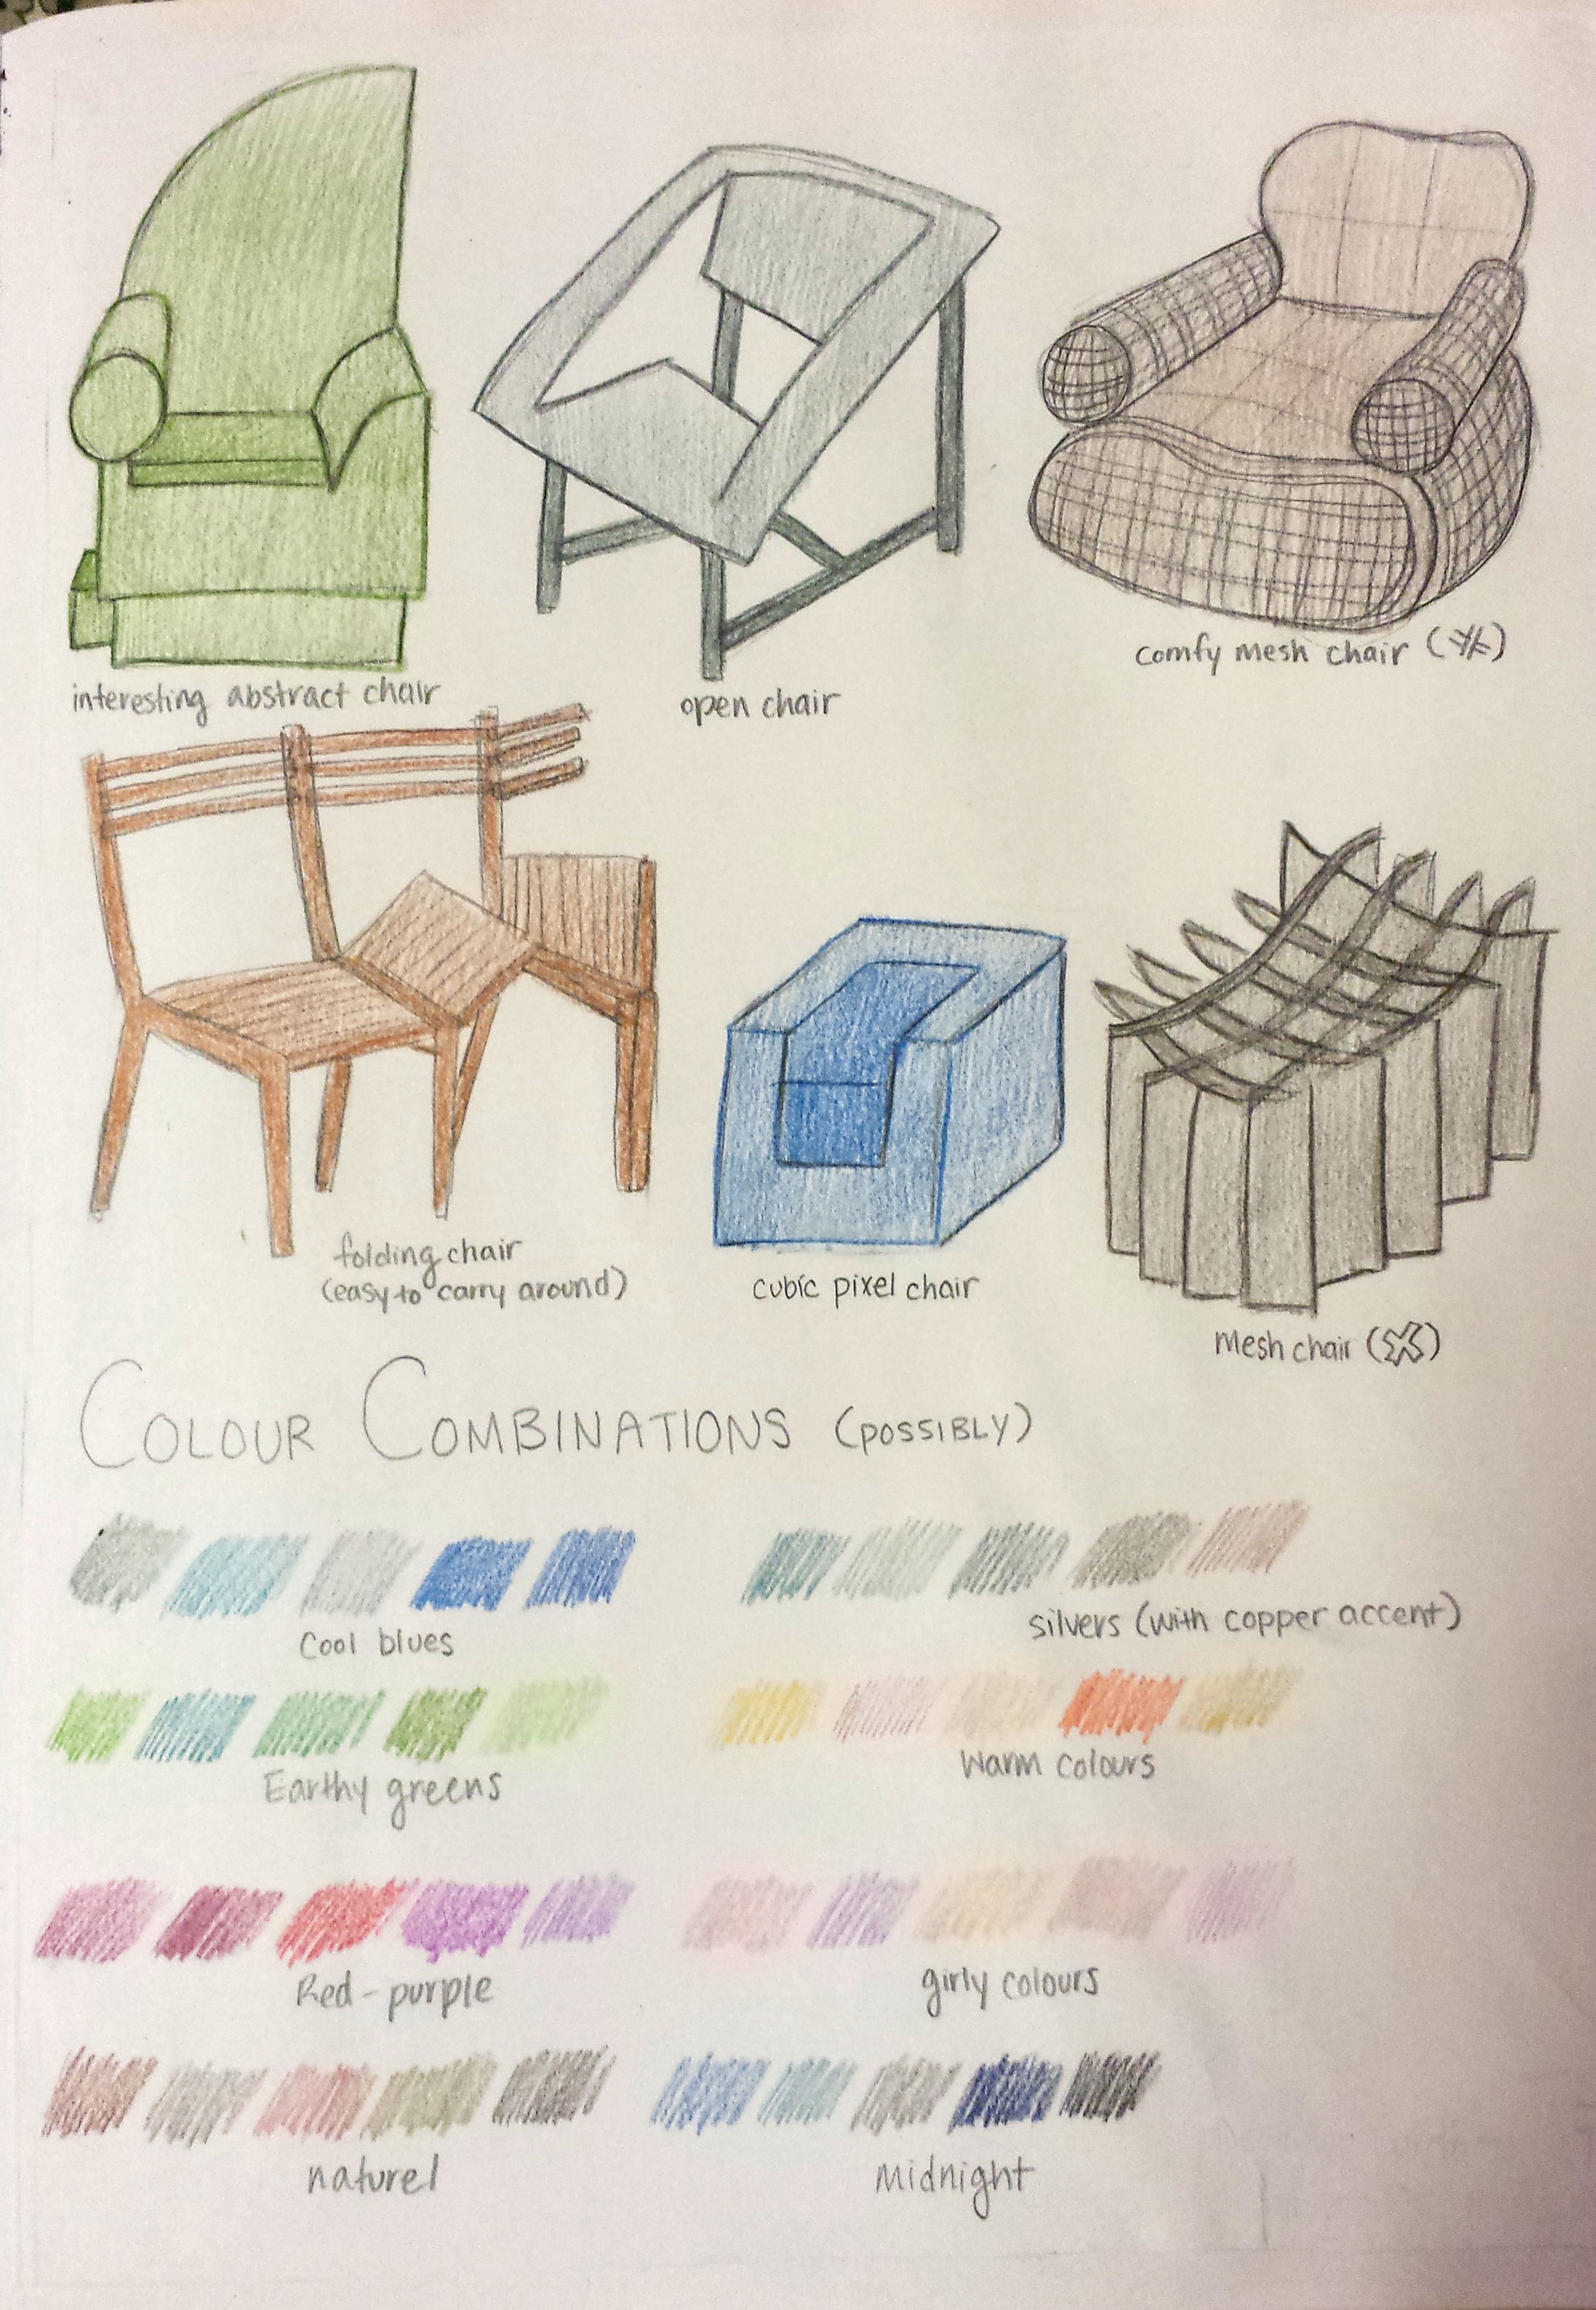 interesting abstract chair
open chair
comfy mesh chair
folding chair
(easy to carry around)
cubic pixel chair
mesh chair
COLOUR COMBINATIONS (POSSIBLY)
cool blues
silvers (with copper accent)
Earthy greens
warm colours
Red-purple
girly colours
naturel
midnight